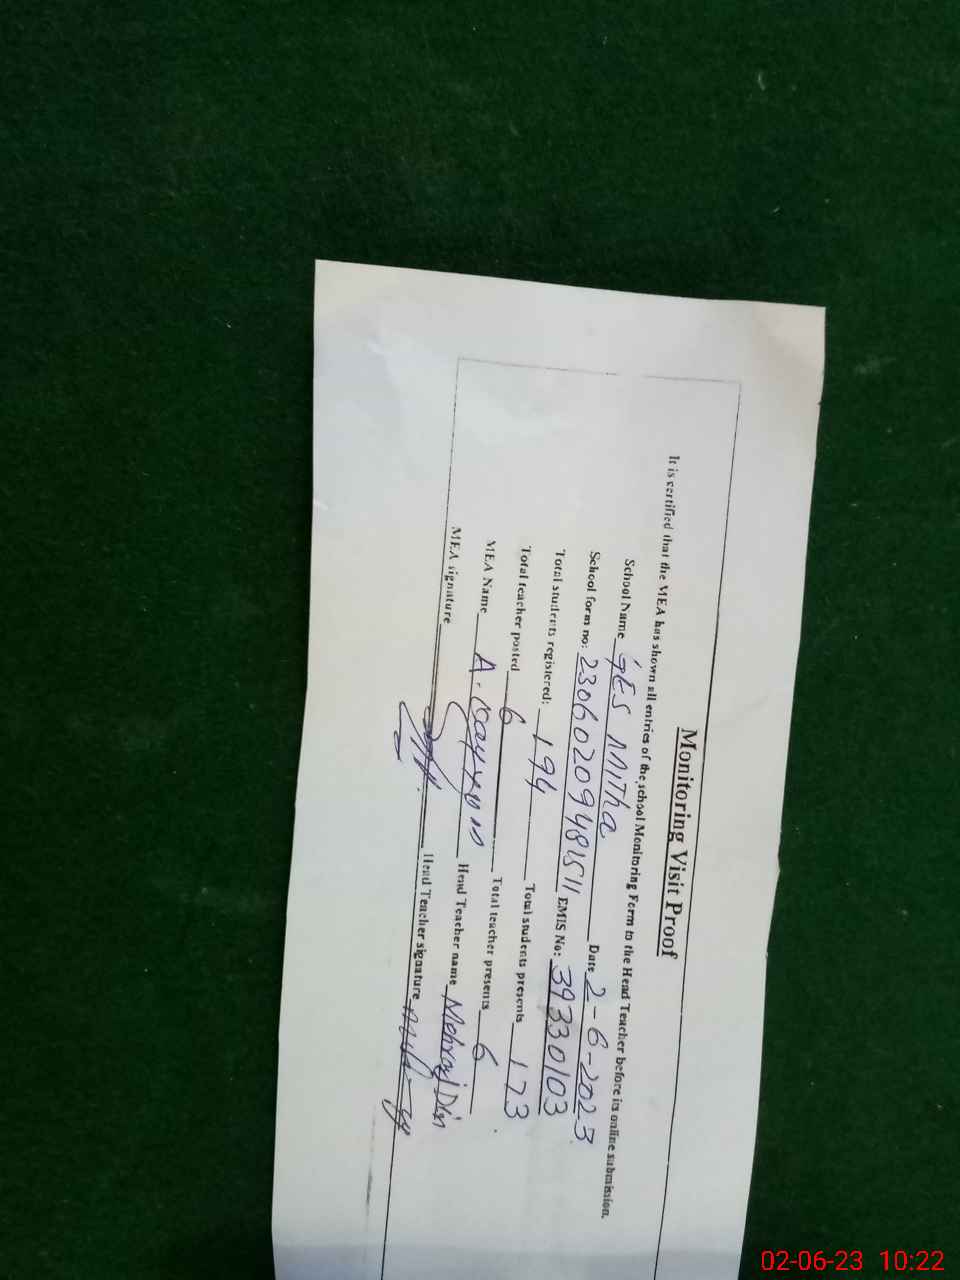 Monitoring Visit Proof
It is certified that the MEA has shown all entries of the school Monitoring Form to the Head Teacher before its online submission.
School Name GES Mitha Date 2-6-2023
School form no: 23060209481511 EMIS No: 39330103
Total students registered: 194 Total students presents 173
Total teacher posted 6 Total teacher presents 6
MEA Name A. Qayyum Head Teacher name Mehraj Din
MEA signature Head Teacher signature
02-06-23 10:22